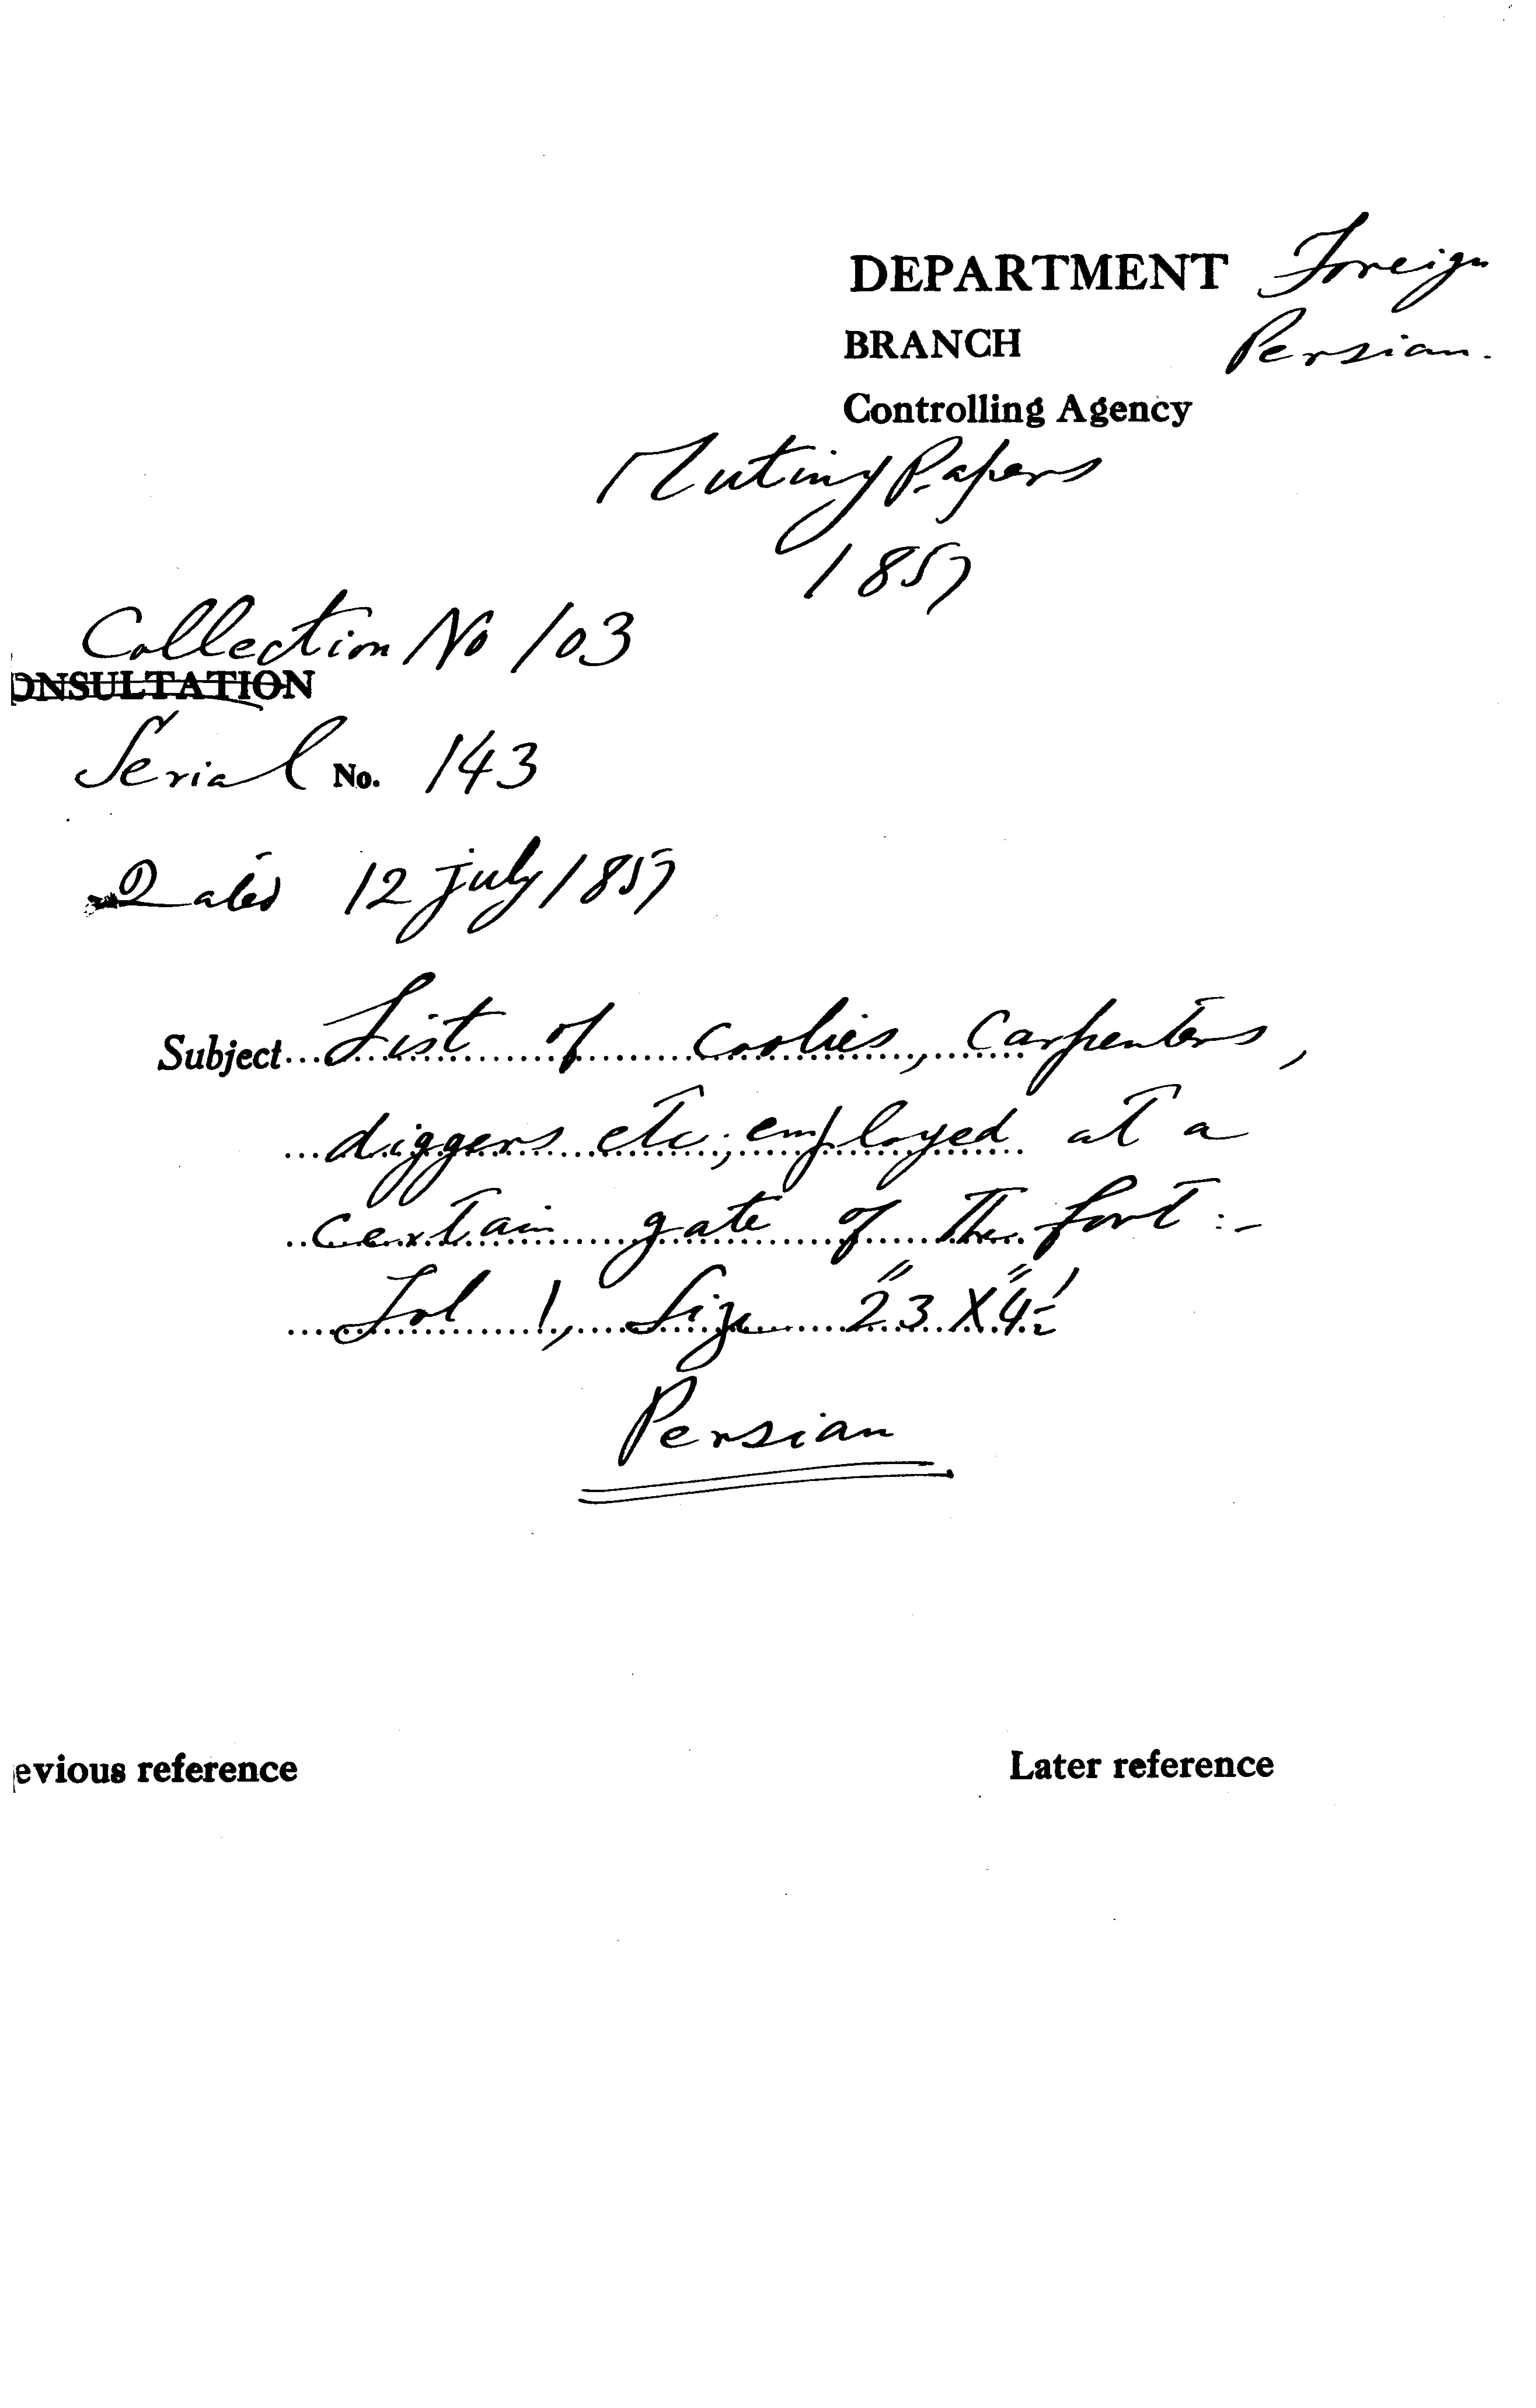 DEPARTMENT Foreign
BRANCH Persian.
Controlling Agency
Mutiny Papers
1857
Collection No 103
ONSULTATION
Serial No. 143
Dated 12 July 1857
Subject... List of coolies, Carpenters,
diggers etc; employed at a
certain gate of the fort :-
Fol 1, Size 23" X 4"½
Persian
evious reference
Later reference